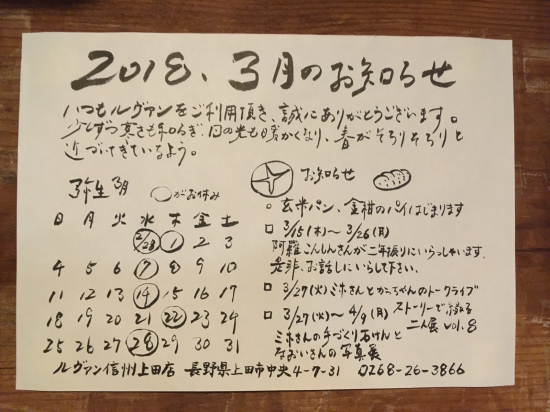 2018、3月のお知らせ
いつもルヴァンをご利用頂き、誠にありがとうございます。
少しずつ寒さも和らぎ、日の光も暖かくなり、春がそろりそろりと
近づいてきているよう。
弥生 3月 ○がお休み
日 月 火 水 木 金 土
2/28 1 2 3
4 5 6 7 8 9 10
11 12 13 14 15 16 17
18 19 20 21 22 23 24
25 26 27 28 29 30 31
お知らせ
○ 玄米パン、金柑のパイはじまります
□ 3/15(木)〜3/26(月)
阿羅こんしんさんが二年振りにいらっしゃいます。
是非、お話しにいらして下さい。
□ 3/27(火)ミホさんとかっちゃんのトークライブ
□ 3/27(火)〜4/9(月)
ストーリーで
二人展 vol.8
ミホさんの手づくり石けんと
なおいさんの写真展
ルヴァン信州上田店 長野県上田市中央4-7-31 0268-26-3866